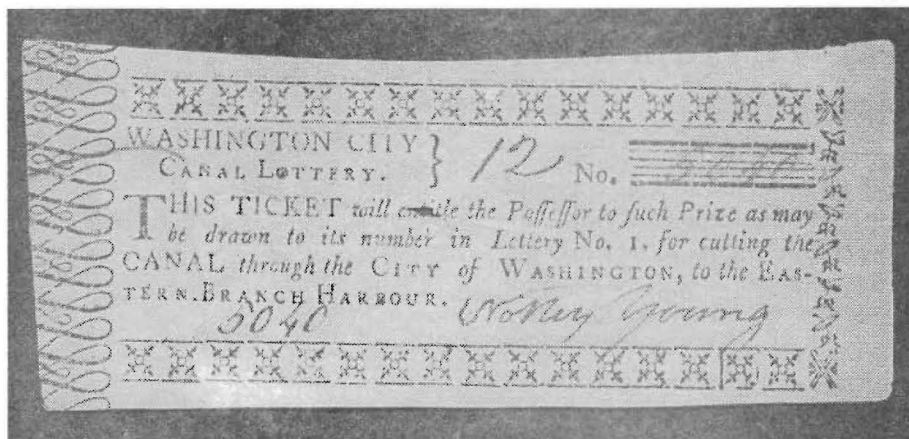 WASHINGTON CITY
CANAL LOTTERY. } 12 No.
THIS TICKET will entitle the Poſſeſſor to ſuch Prize as may
be drawn to its number in Lottery No. 1, for cutting the
CANAL through the CITY of WASHINGTON, to the EAS-
TERN BRANCH HARBOUR.
5040 Notley Young